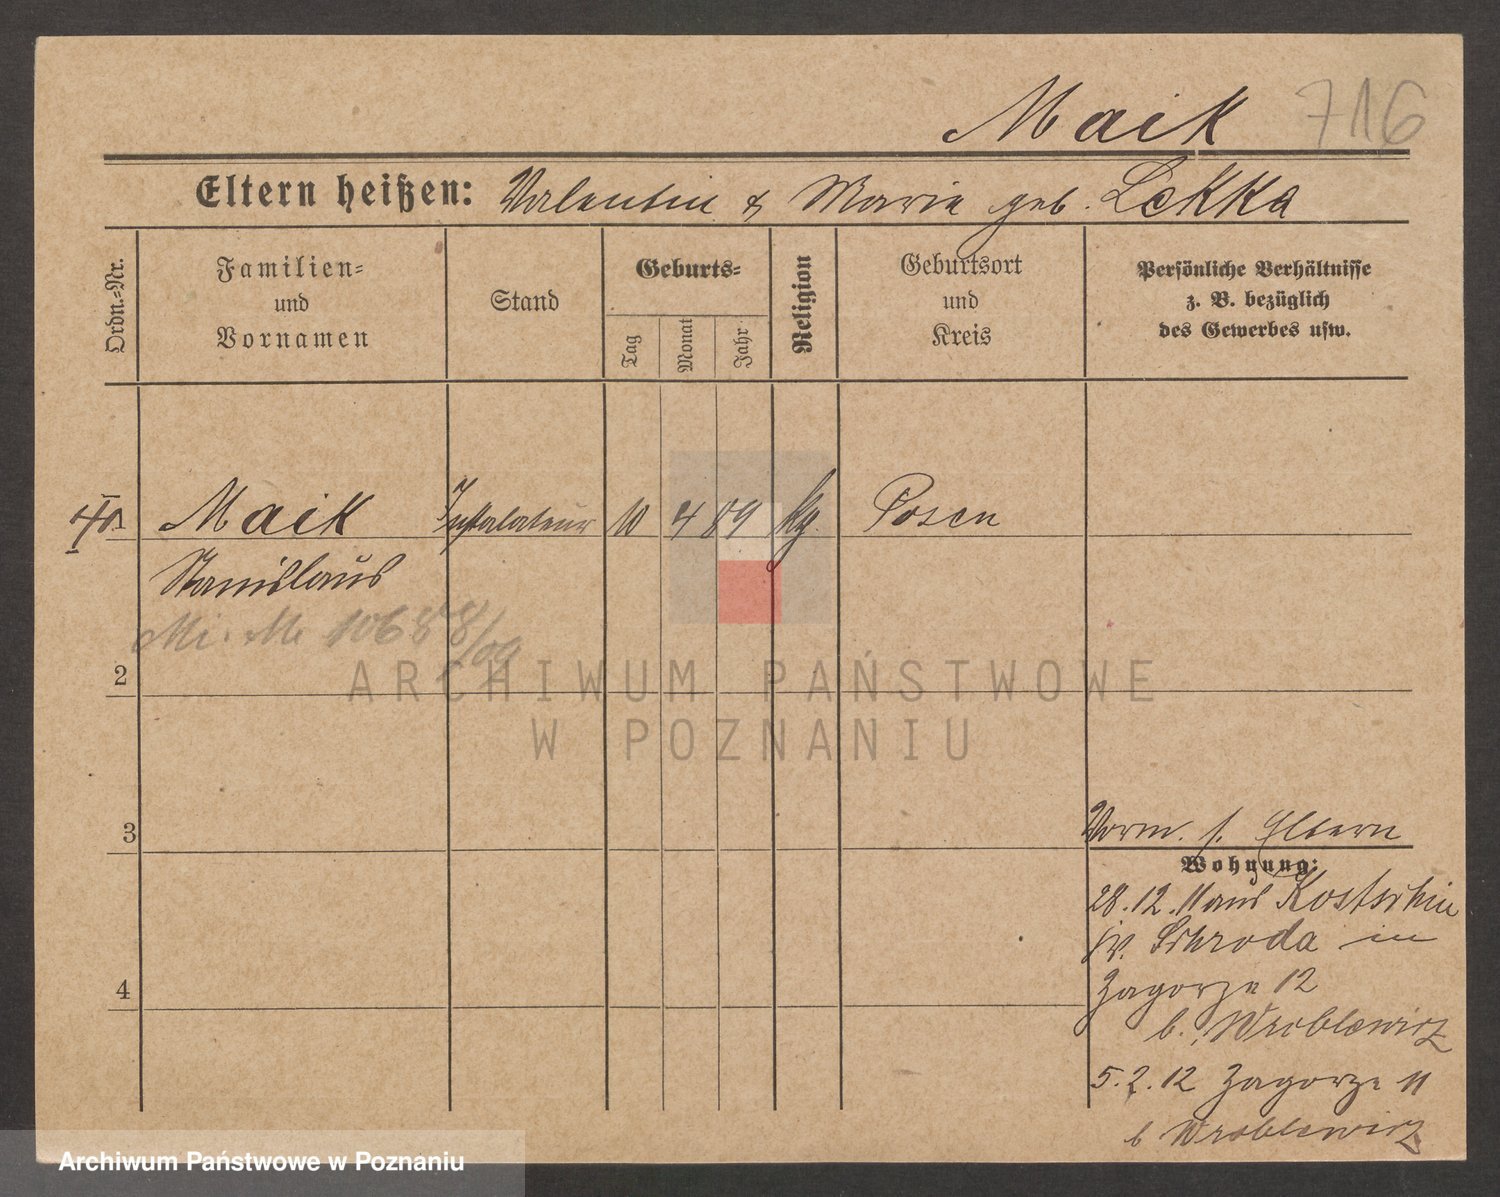 Maik 716
Eltern heißen: Valentin & Marie geb. Lekka
Ordn.=Nr.
Familien=
und
Vornamen
Stand
Geburts=
Tag
Monat
Jahr
Religion
Geburtsort
und
Kreis
Persönliche Verhältnisse
z. B. bezüglich
des Gewerbes usw.
Maik Instalateur 10 4 89 kg. Posen
Stanislaus
Mi. M. 10688/09
2
ARCHIWUM PAŃSTWOWE
W POZNANIU
3
Vorm. s. Eltern
Wohnung:
28.12.11 aus Kostschin
Schroda in
Zagorze 12
b. Wroblewicz
4
5.2.12 Zagorze 11
b Wroblewicz
Archiwum Państwowe w Poznaniu